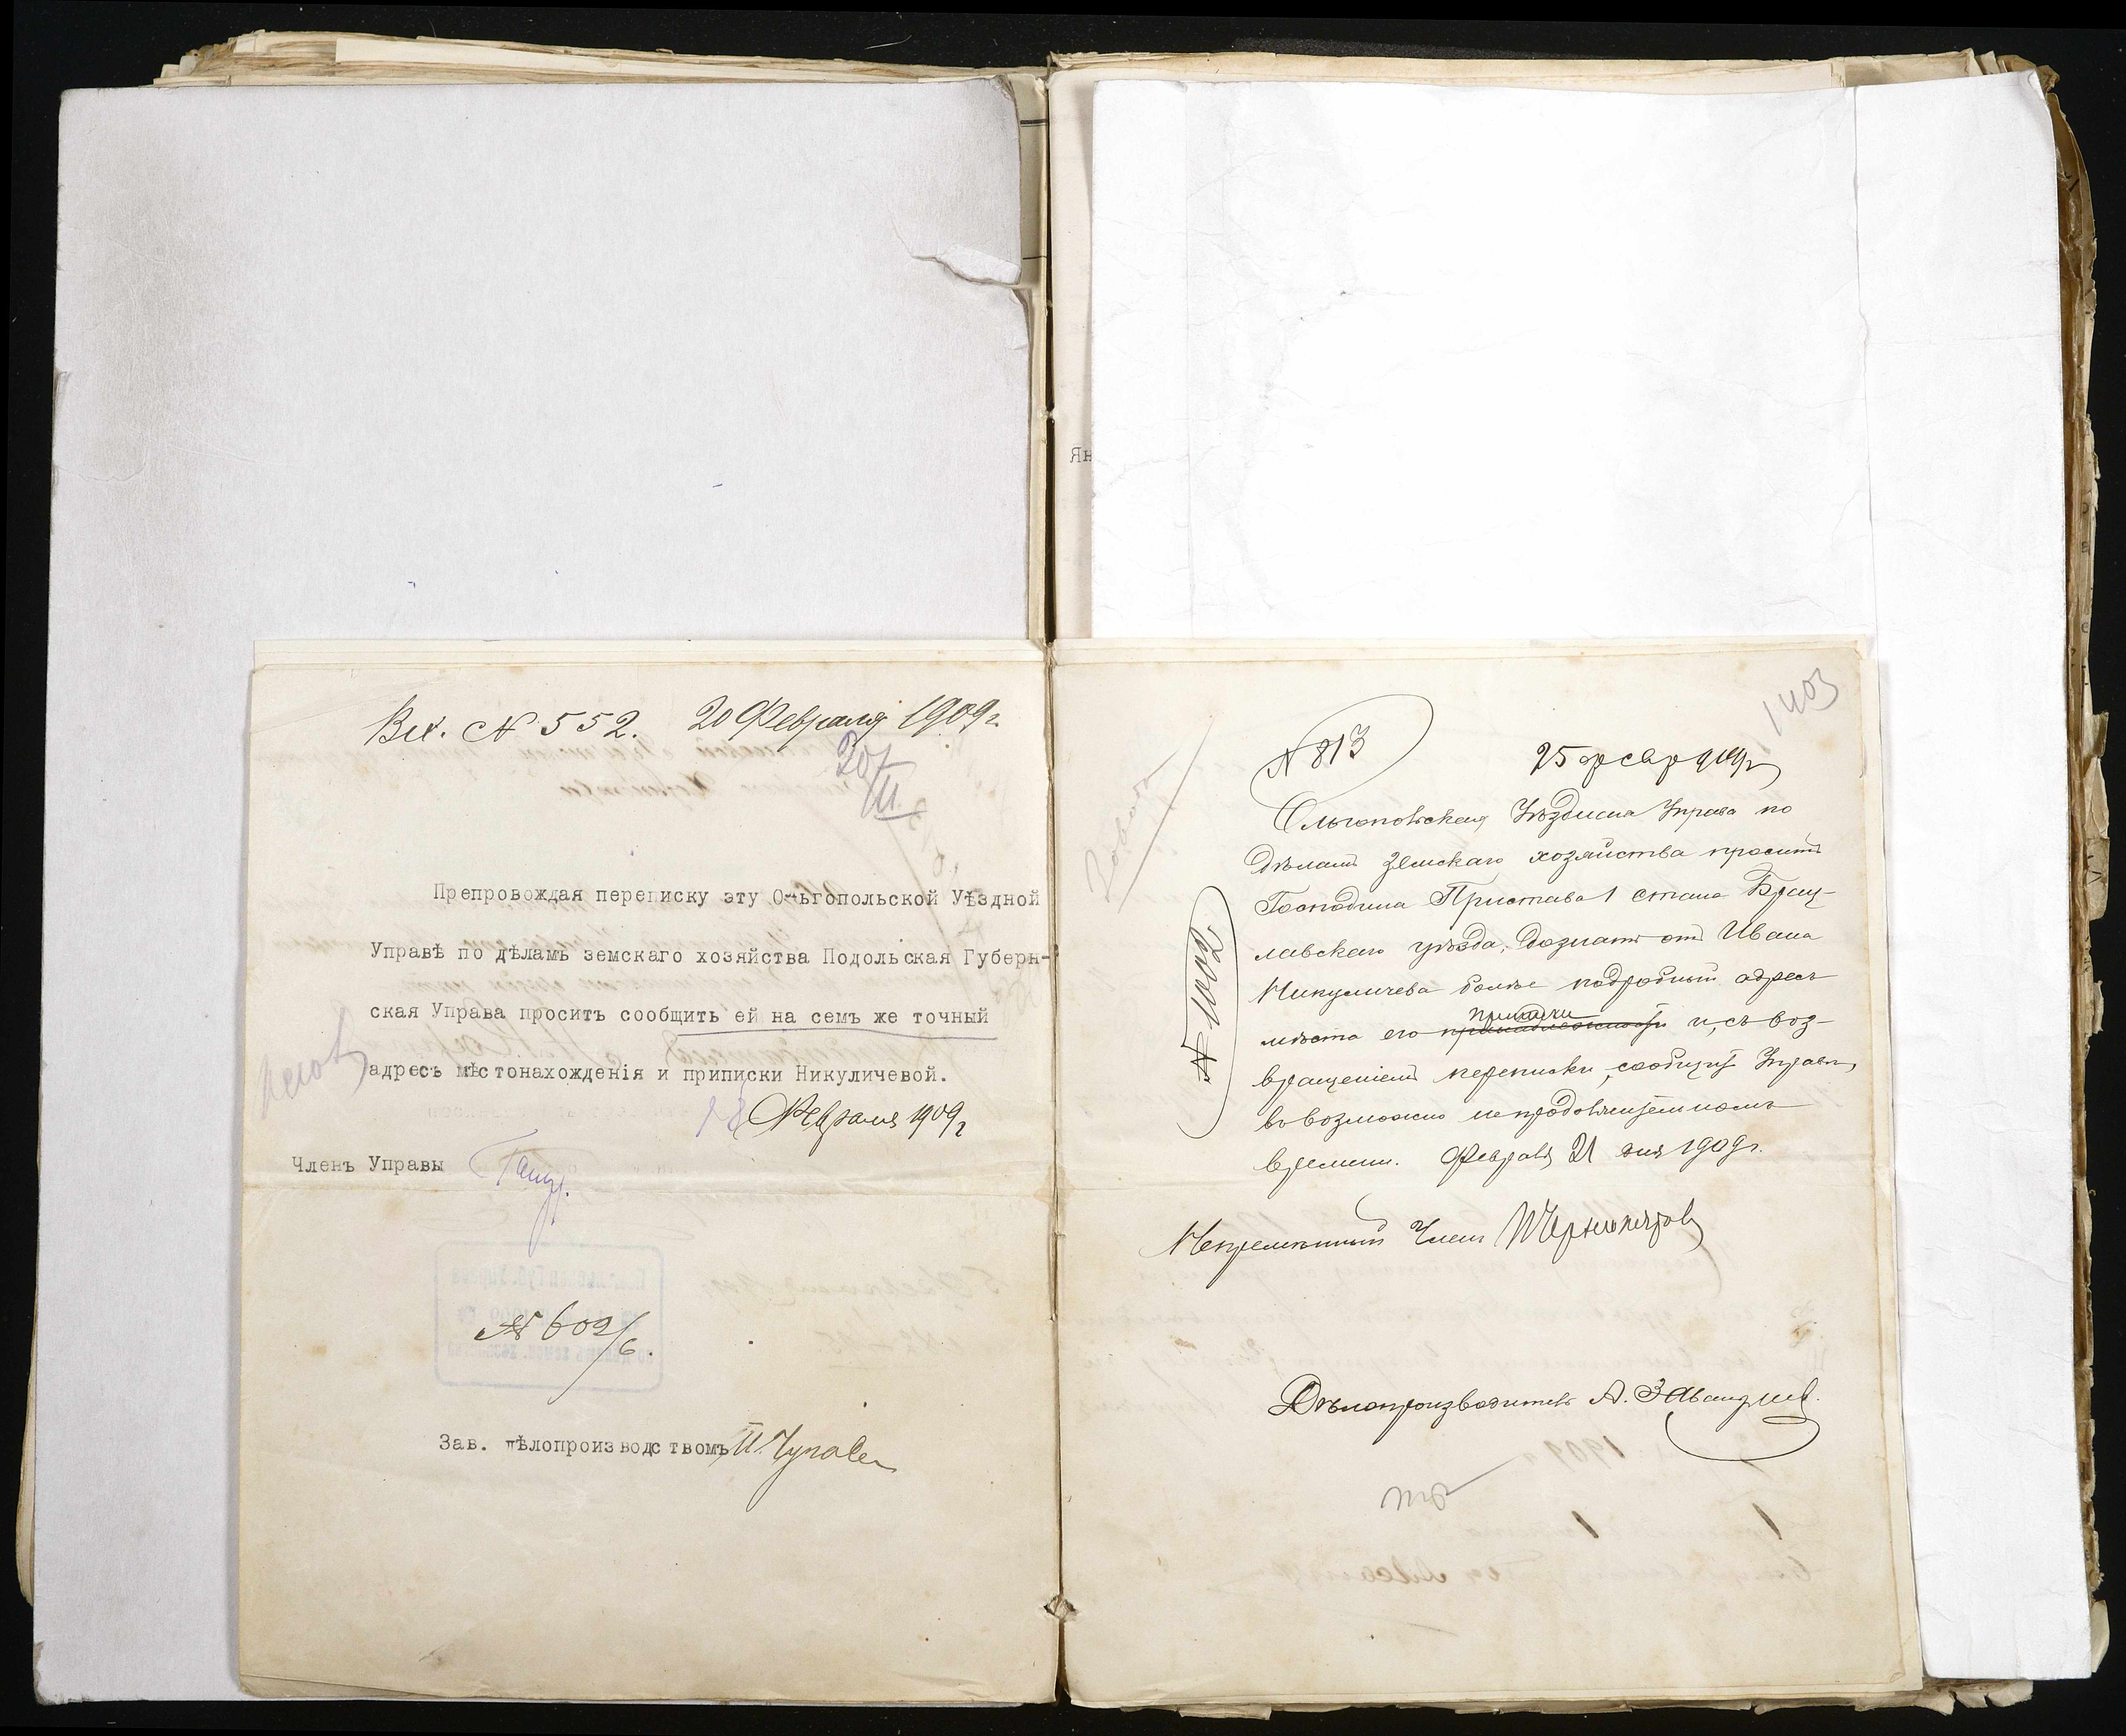 Вх. № 552. 20 Февраля 1909 г.
20/II
Препровождая переписку эту Ольгопольской Уѣздной
Управѣ по дѣламъ земскаго хозяйства Подольская Губерн-
ская Управа проситъ сообщить ей на семъ же точный
адресъ мѣстонахожденія и приписки Никуличевой.
Февраля 1909 г
Членъ Управы
№ 609/6.
Зав. дѣлопроизводствомъ
Ян
1403
№ 813
25 февр 909 г
Ольгопольская Уѣздная Управа по
дѣламъ земскаго хозяйства проситъ
Господина Пристава 1 стана Брац-
лавскаго уѣзда, дознать отъ Ивана
Никуличева болѣе подробный адресъ
мѣста его приписки и, съ воз-
вращеніемъ переписки, сообщить Управѣ,
въ возможно непродолжительномъ
времени. Февраля 21 дня 1909 г.
№ 1002
Непремѣнный Членъ
Дѣлопроизводитель А.